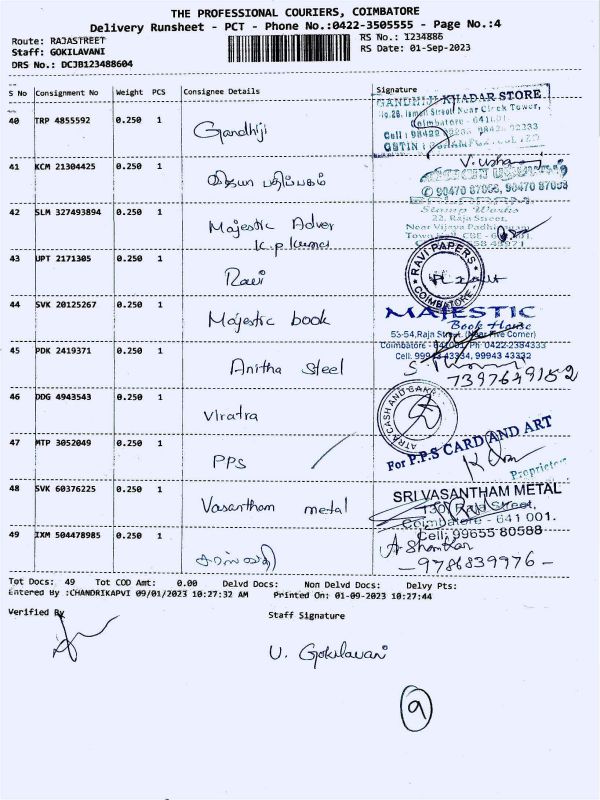 THE PROFESSIONAL COURIERS, COIMBATORE
Delivery Runsheet - PCT - Phone No.:0422-3505555 - Page No.:4
Route: RAJASTREET
RS No.: 1234886
Staff: GOKILAVANI
RS Date: 01-Sep-2023
DRS No.: DCJB123488604
S No Consignment No Weight PCS Consignee Details Signature
GANDHIJI KHADAR STORE
Near Clock Tower,
40 TRP 4855592 0.250 1 Gandhiji
Coimbatore - 641 001.
41 KCM 21304425 0.250 1 விஜயா பதிப்பகம்
V. usha
90470 87058, 90470 87058
42 SLM 327493894 0.250 1 Majestic Adver
K.p. Kumar
Stamp Works
22, Raja Street,
43 UPT 2171305 0.250 1 Ravi
RAVI PAPERS
COIMBATORE
44 SVK 20125267 0.250 1 Majestic book
MAJESTIC
Book House
53-54, Raja Street, (Near Five Corner)
Coimbatore - 641001. Ph: 0422-2384333
Cell: 99943 43334, 99943 43332
45 PDK 2419371 0.250 1 Anitha Steel
7397649152
46 DDG 4943543 0.250 1 Viratra
47 MTP 3052049 0.250 1 PPS
For P.P.S CARD AND ART
Proprietor
48 SVK 60376225 0.250 1 Vasantham metal
SRI VASANTHAM METAL
130, Raja Street,
Coimbatore - 641 001.
Cell: 99655 80588
49 IXM 504478985 0.250 1 சரஸ்வதி
A Shankar
- 9786839976 -
Tot Docs: 49 Tot COD Amt: 0.00 Delvd Docs: Non Delvd Docs: Delvy Pts:
Entered By :CHANDRIKAPVI 09/01/2023 10:27:32 AM Printed On: 01-09-2023 10:27:44
Verified By
Staff Signature
U. Gokilavani
9